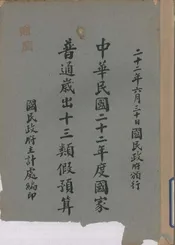 二十二年六月三十日國民政府頒行
中華民國二十二年度國家
普通歲出十三類假預算
國民政府主計處編印